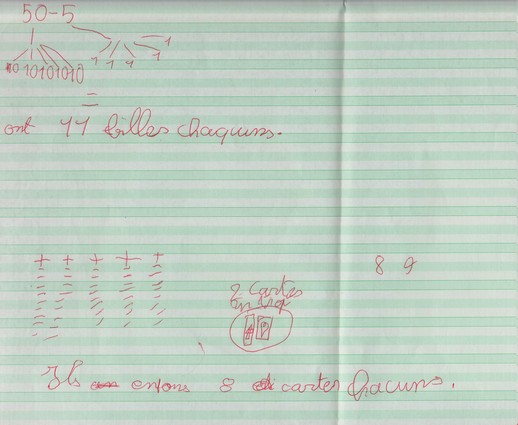 50-5
1
10 10 10 10 10 1 1 1 1 1
=
ont 11 billes chaquns.
+ + + + +
8 9
2 cartes
en trop
1 2
Ils enons 8 cartes chacuns.